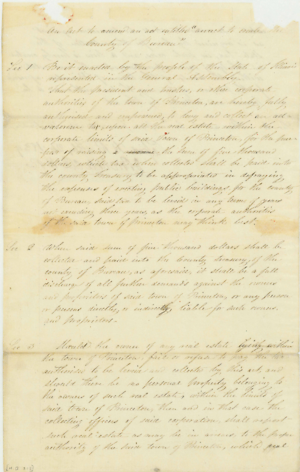 An act to review an act entitled "an act to create the
County of Bureau"
Sec 1 Be it enacted by the people of the State of Illinois
represented in the General Assembly.
That the president and trustees, or other corporate
authorities of the town of Princeton, are hereby fully
authorized and empowered, to levy and collect an ad
valorem tax upon all real estate within the
corporate limits of said Town of Princeton, for the pur
pose of raising the sum of five thousand
dollars, which tax when collected shall be paid into
the county treasury to be appropriated in defraying
the expenses of erecting public buildings for the county
of Bureau, said tax to be levied in any term of years
not exceeding three years, as the corporate authorities
of the said town of Princeton may think best.
Sec 2 When said sum of five thousand dollars shall be
collected and paid into the County Treasury of the
County of Bureau, as aforesaid, it shall be a full
discharge of all further demands against the owners
and proprietors of said town of Princeton, or any person
or persons directly or indirectly liable for said owners
and proprietors.
Sec 3 Should the owner of any real estate lying within
the town of Princeton fail or refuse to pay the tax
authorized to be levied and collected by this act, and
should there be no personal property belonging to
the owner of such real estate within the limits of
said town of Princeton, then and in that case the
collecting officer of said corporation shall report
such real estate as may be in arrears to the proper
authority of the said town of Princeton, which